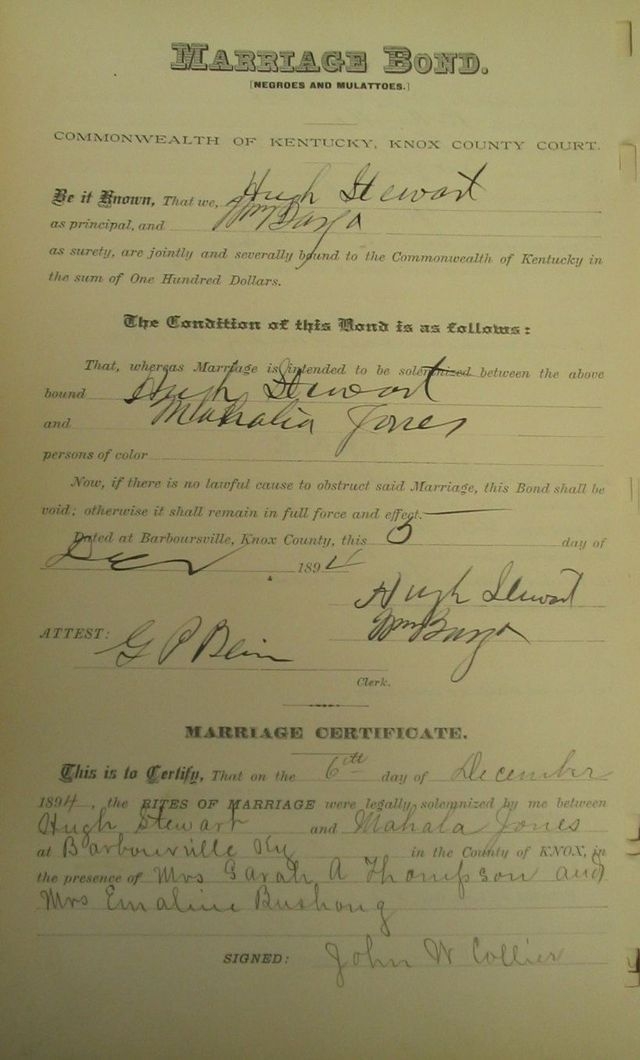 MARRIAGE BOND.
[NEGROES AND MULATTOES.]
COMMONWEALTH OF KENTUCKY, KNOX COUNTY COURT.
Be it Known, That we, Hugh Stewart
as principal, and Wm
as surety, are jointly and severally bound to the Commonwealth of Kentucky in
the sum of One Hundred Dollars.
The Condition of this Bond is as follows:
That, whereas Marriage is intended to be solemnized between the above
bound Hugh Stewart
and Mahalia Jones
persons of color
Now, if there is no lawful cause to obstruct said Marriage, this Bond shall be
void; otherwise it shall remain in full force and effect.
Dated at Barboursville, Knox County, this 5 day of
Dec 1894
Hugh Stewart
Wm
ATTEST: G P
Clerk.
MARRIAGE CERTIFICATE.
This is to Certify, That on the 6th day of December
1894, the RITES OF MARRIAGE were legally solemnized by me between
Hugh Stewart and Mahala Jones
at Barbourville Ky in the County of KNOX, in
the presence of Mrs Sarah A Thompson and
Mrs Emaline Bushong
SIGNED: John W Collier